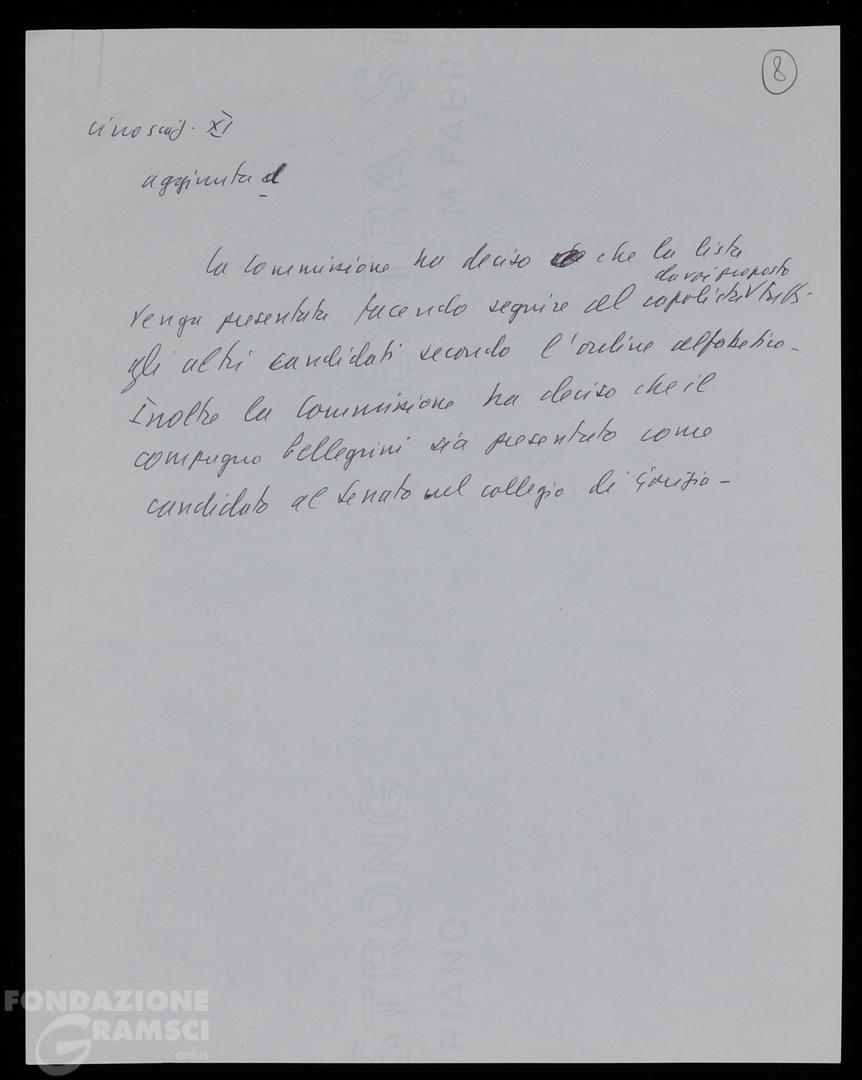 8
circoscriz. XI
aggiunta d
La Commissione ha deciso che la lista
da voi proposto
venga presentata facendo seguire al capolista tutti
gli altri candidati secondo l'ordine alfabetico -
Inoltre la Commissione ha deciso che il
compagno Pellegrini sia presentato come
candidato al Senato nel collegio di Gorizia -
EXTRA STRONG
M. FABRIANO
FONDAZIONE
GRAMSCI
onlus